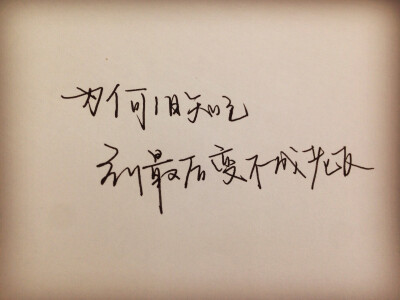 为何旧知己
到最后变不成老友